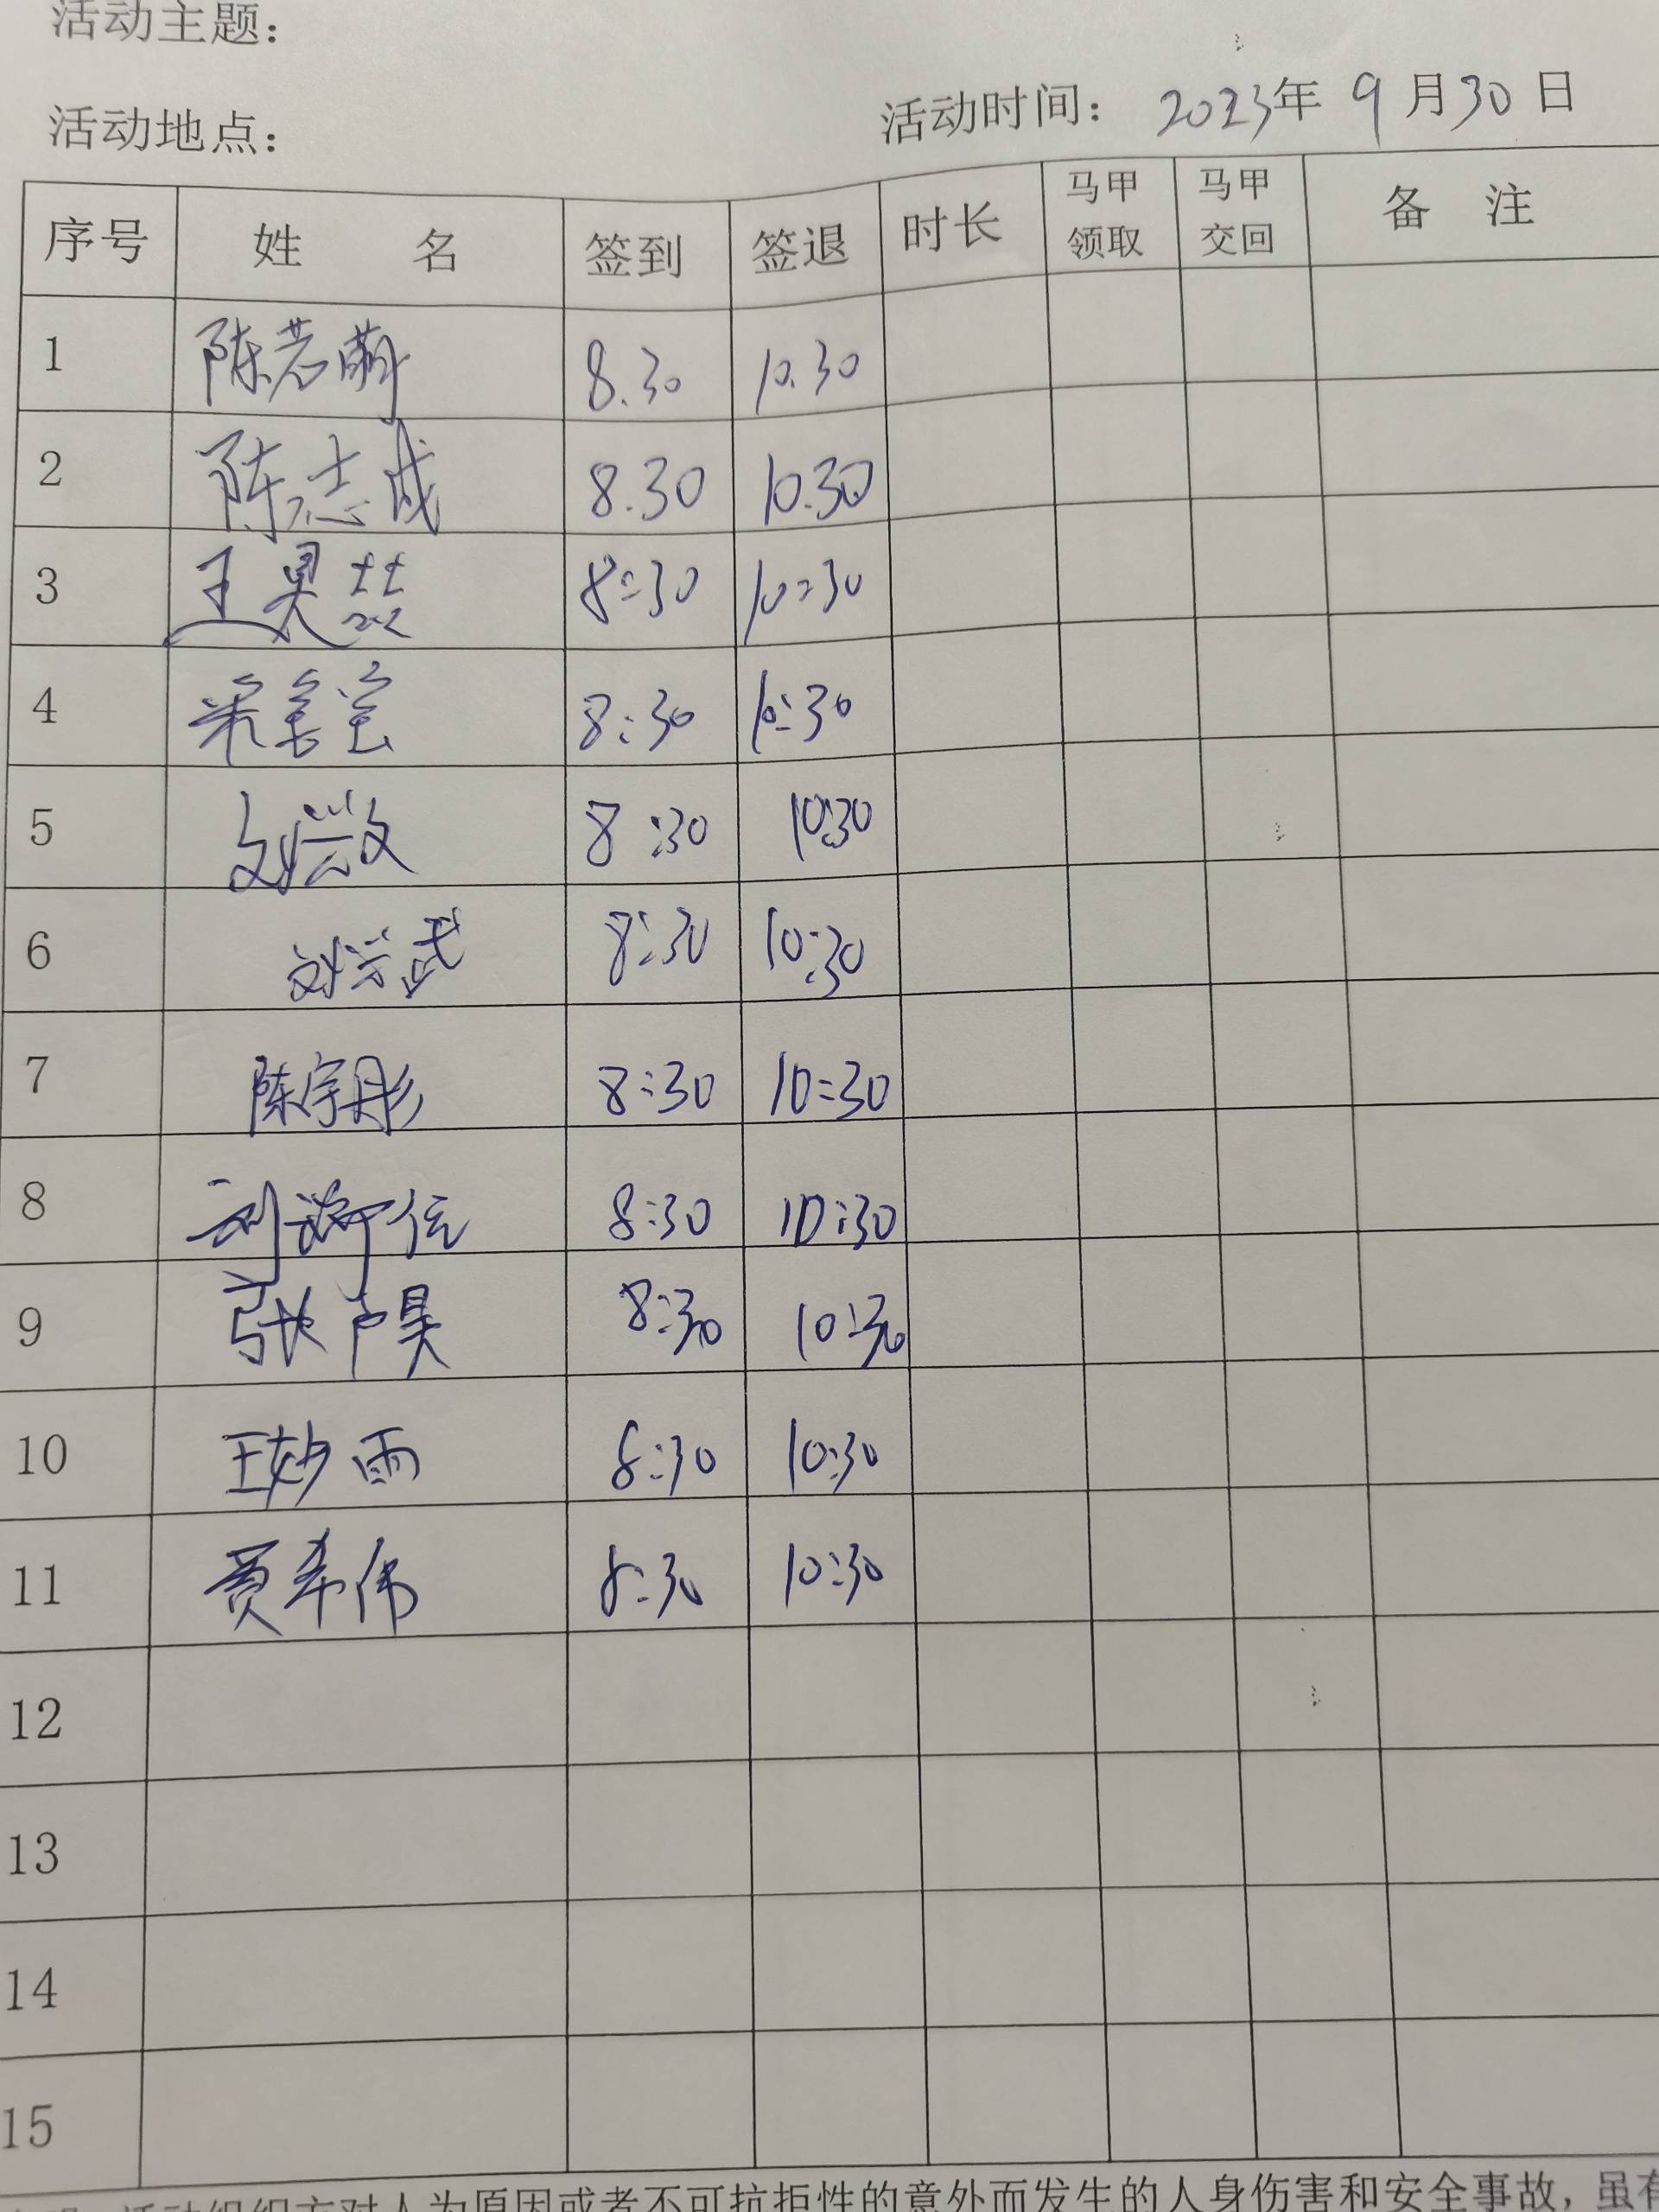 活动主题：
活动地点： 活动时间： 2023年 9月30日
序号 姓 名 签到 签退 时长 马甲领取 马甲交回 备 注
1 陈若萌 8.30 10.30
2 陈志成 8.30 10.30
3 王昊 8:30 10:30
4 8:30 10:30
5 刘兴文 8:30 10:30
6 刘兴武 8:30 10:30
7 陈宇彤 8:30 10:30
8 刘 8:30 10:30
9 张 昊 8:30 10:30
10 王妙雨 8:30 10:30
11 贾希伟 8:30 10:30
12
13
14
15
活动组织方对人为原因或者不可抗拒性的意外而发生的人身伤害和安全事故，虽有